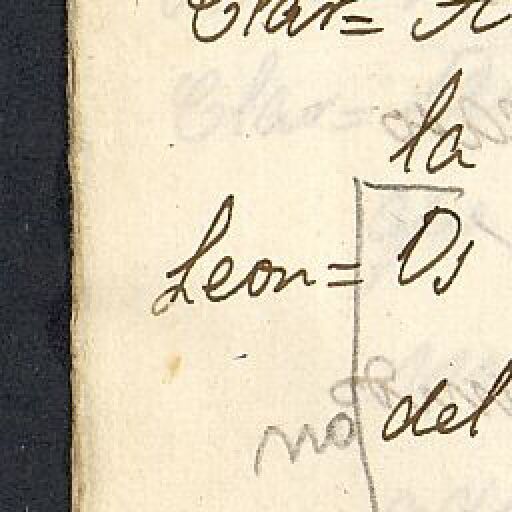 Clar=
la
Leon= Os
no del